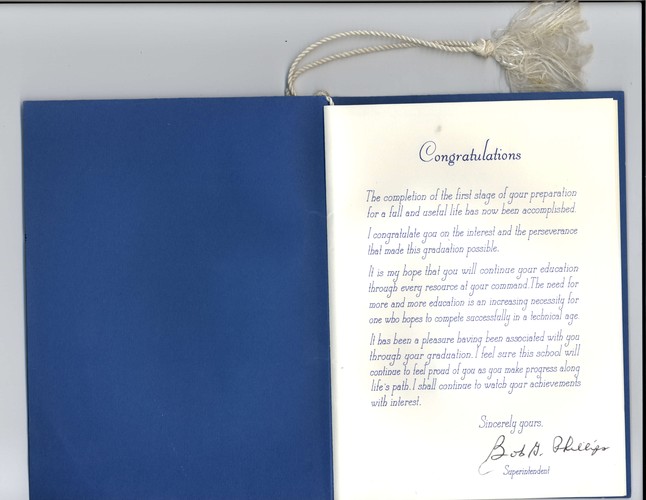 Congratulations
The completion of the first stage of your preparation
for a full and useful life has now been accomplished.
I congratulate you on the interest and the perseverance
that made this graduation possible.
It is my hope that you will continue your education
through every resource at your command. The need for
more and more education is an increasing necessity for
one who hopes to compete successfully in a technical age.
It has been a pleasure having been associated with you
through your graduation. I feel sure this school will
continue to feel proud of you as you make progress along
life's path. I shall continue to watch your achievements
with interest.
Sincerely yours,
Bob G. Phillips
Superintendent